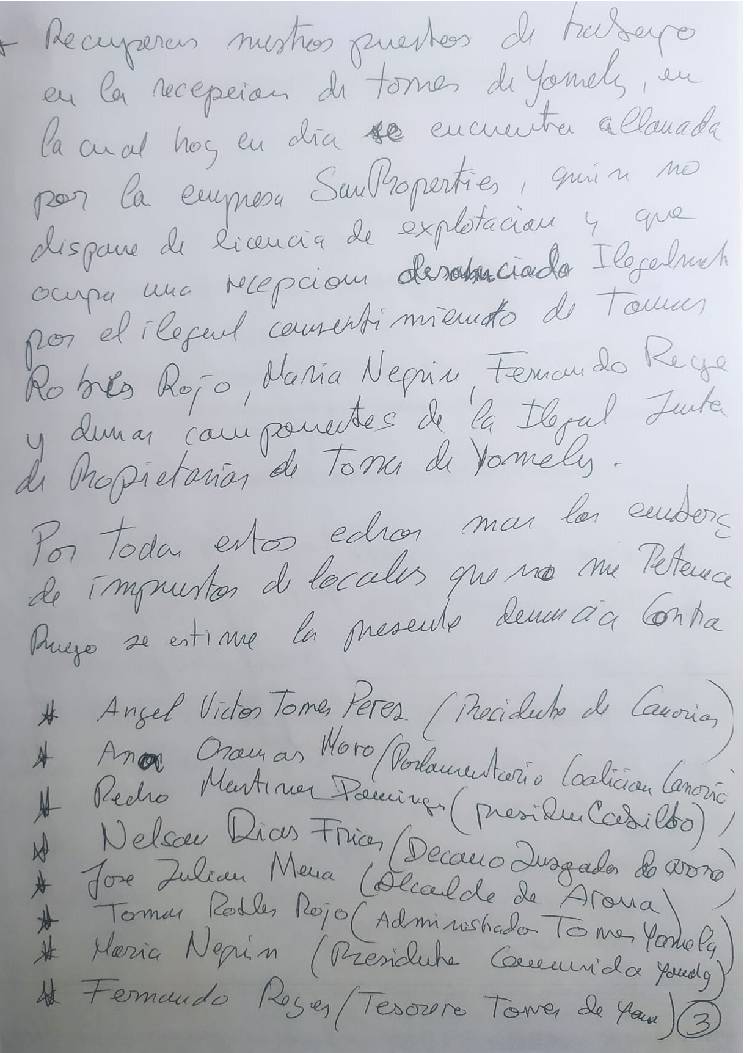 * Recuperar nuestros puestos de trabajo
en la recepcion de torres de Yomely, en
la cual hoy en dia se encuentra allanada
por la empresa SanProperties, quien no
dispone de licencia de explotacion y que
ocupa una recepcion desahuciada Ilegalment
por el ilegal consentimiento de Tomas
Robles Rojo, Maria Negrin, Fernando Reye
y demas componentes de la Ilegal Junta
de Propietarios de Torres de Yomely.
Por todos estos echos mas los embarg
de impuestos de locales que no me Petenece
Ruego se estime la presente denuncia Contra
* Angel Victor Torres Perez (Precidente de Canarias)
* Ana Oramas Moro (Parlamentario Coalicion Canaria)
* Pedro Martinez Domingo (presiden Cabildo)
* Nelson Dias Frias (Decano Juzgados de arona)
* Jose Julian Mena (Alcalde de Arona)
* Tomas Robles Rojo (Administrador Torres Yomely)
* Maria Negrin (Presidente Comunida Yomely)
* Fernando Reyes (Tesorero Torres de Yom) 3